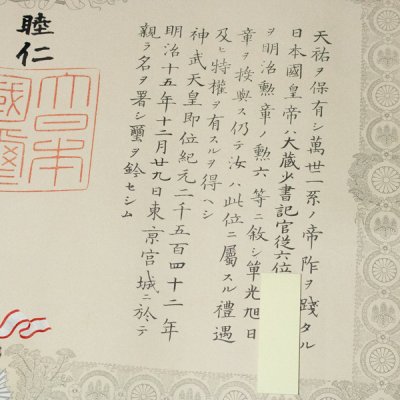 天祐ヲ保有シ萬世一系ノ帝祚ヲ踐タル
日本國皇帝ハ大蔵少書記官從六位
ヲ明治勲章ノ勲六等ニ敘シ單光旭日
章ヲ授與ス仍テ汝ハ此位ニ屬スル禮遇
及ヒ特權ヲ有スルヲ得ヘシ
神武天皇即位紀元二千五百四十二年
明治十五年十二月廿九日東京宮城ニ於テ
親ラ名ヲ署シ璽ヲ鈐セシム
睦仁
大日本
國璽